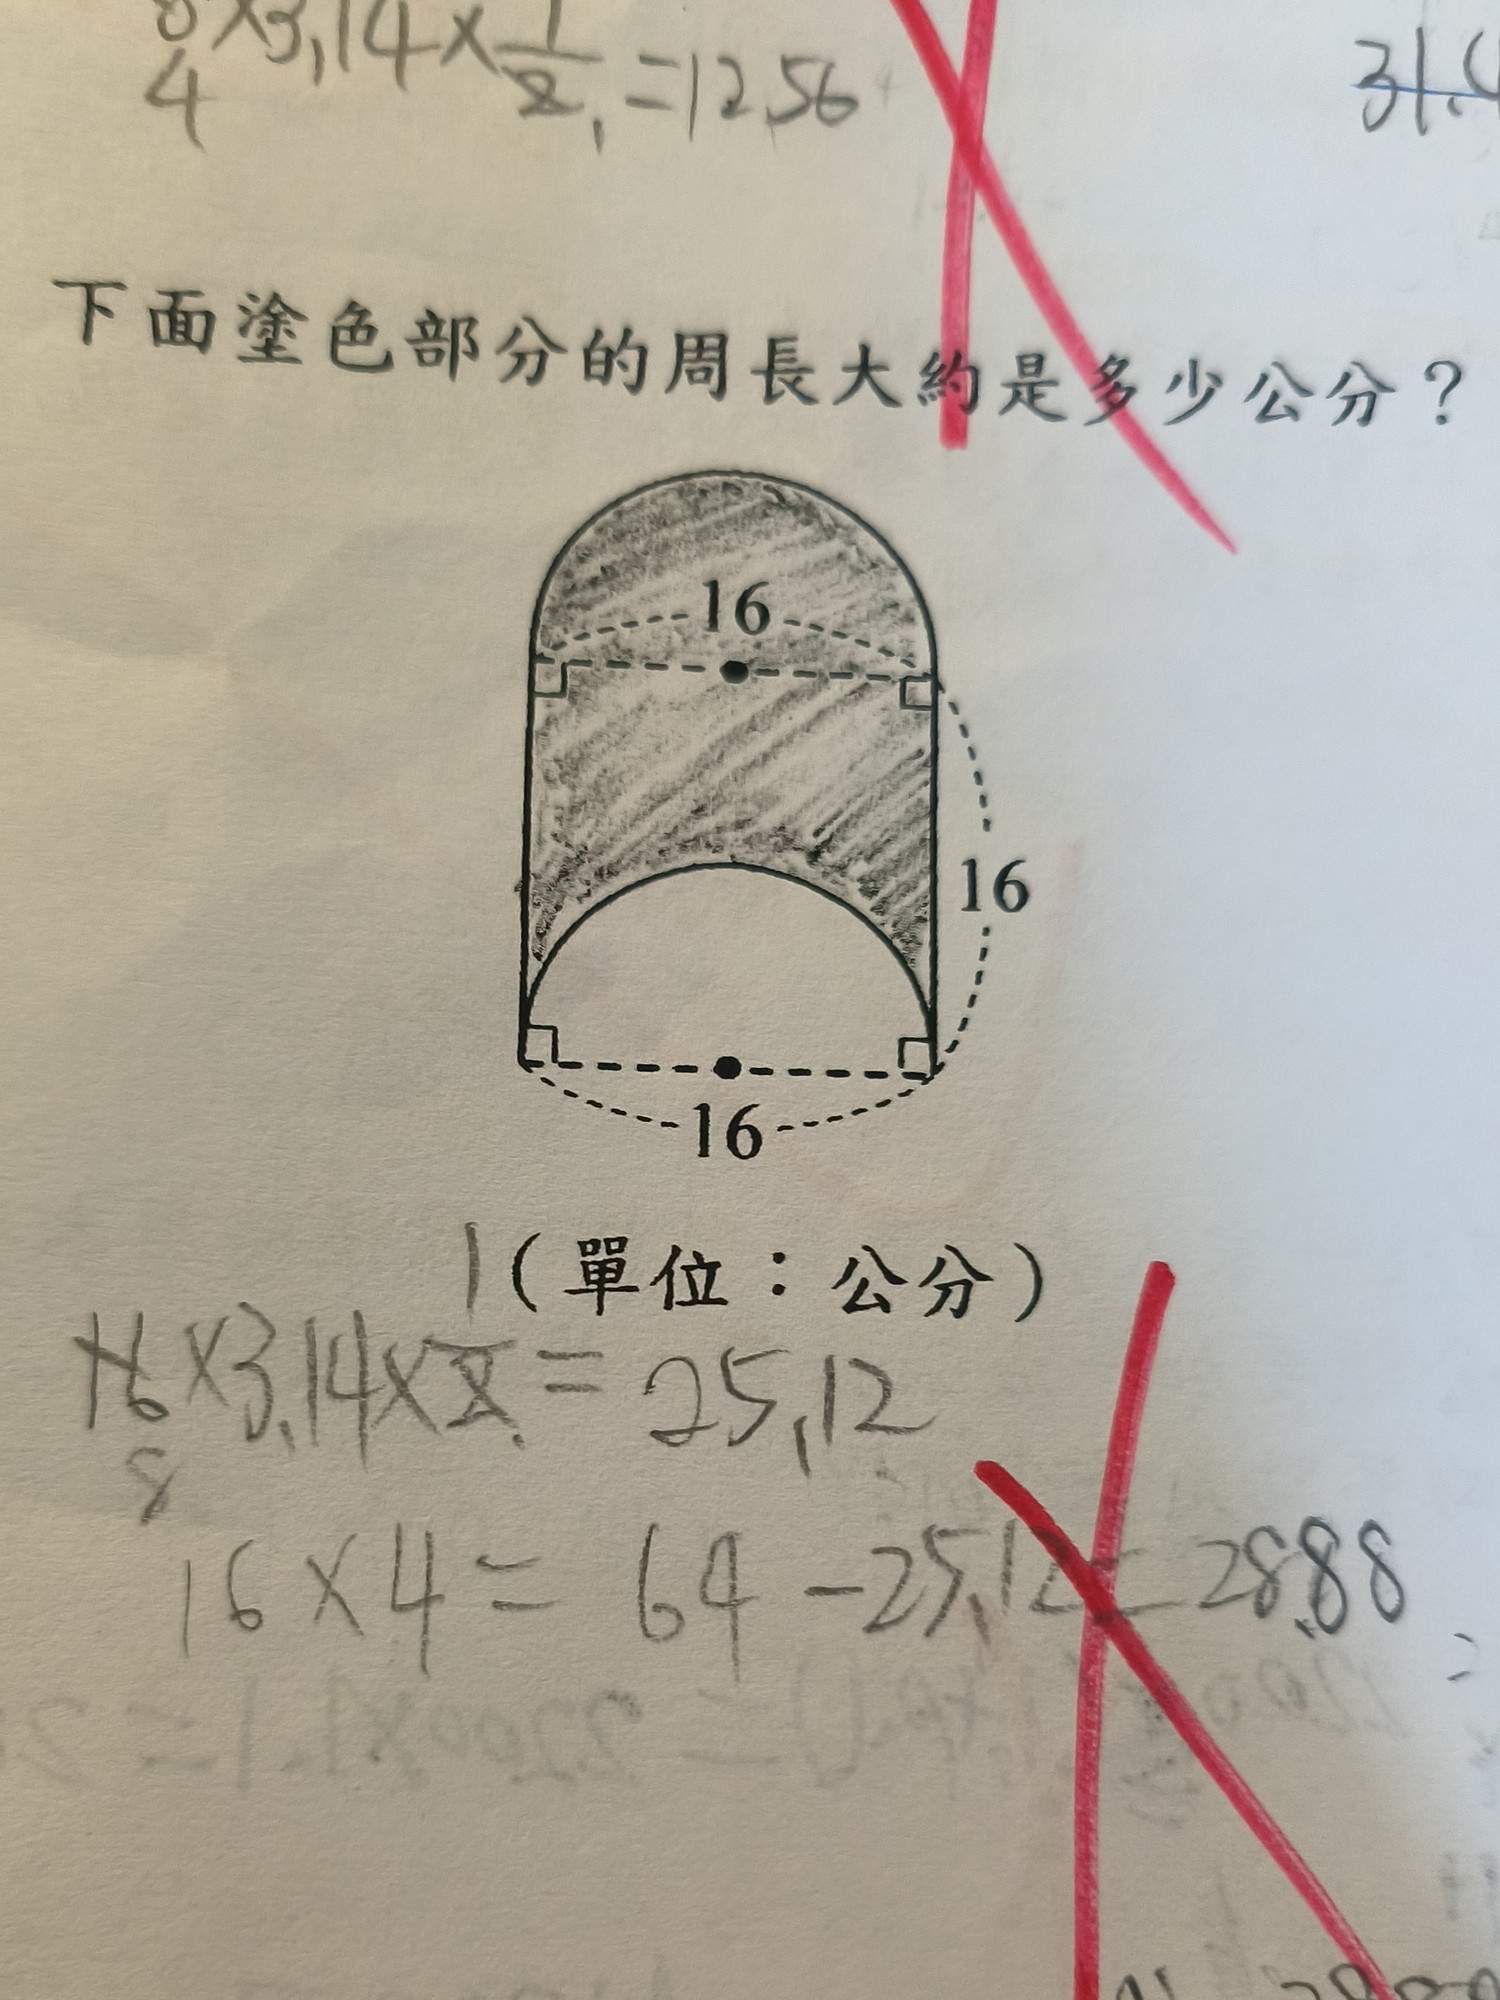 ×3.14×1/2=12.56
4
31.4
下面塗色部分的周長大約是多少公分？
16
16
16
（單位：公分）
16×3.14×1/2=25.12
8
16×4=64-25.12=28.88